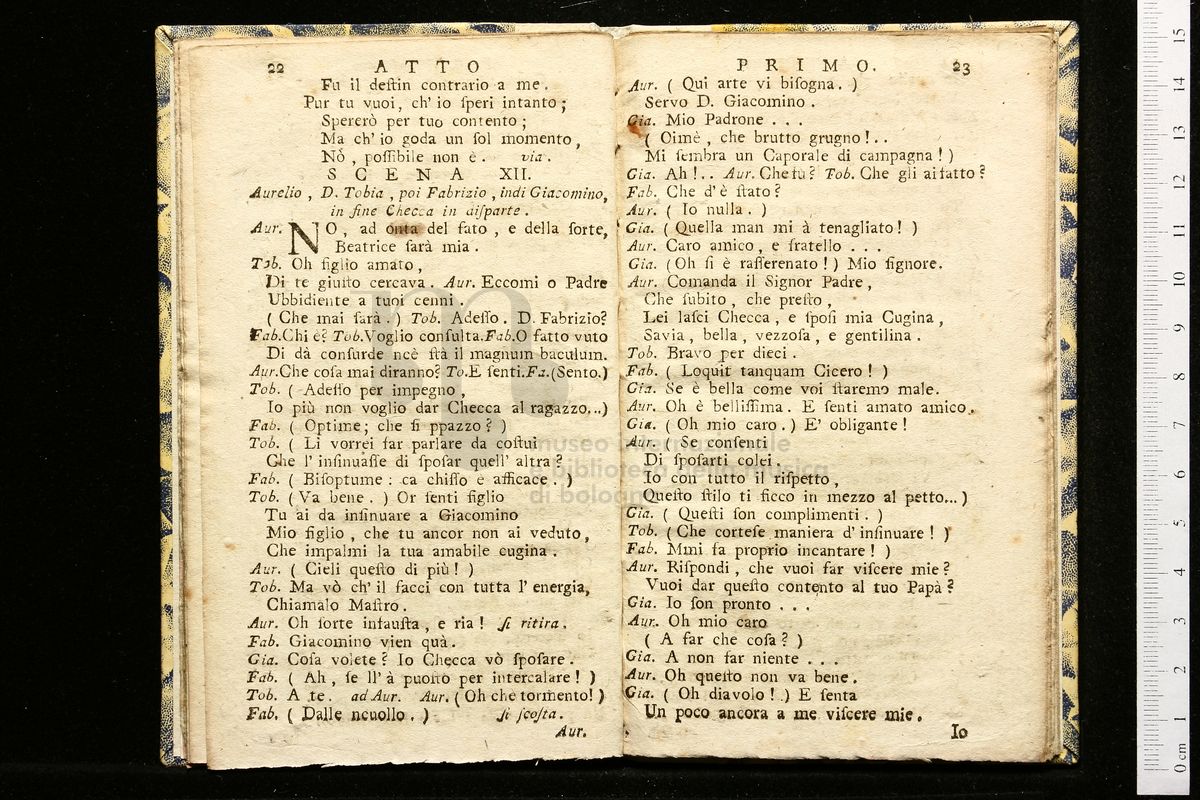 22 ATTO
Fu il deſtin contrario a me.
Pur tu vuoi, ch' io ſperi intanto;
Spererò per tuo contento;
Ma ch' io goda un ſol momento,
Nò, poſſibile non è. via.
SCENA XII.
Aurelio, D. Tobia, poi Fabrizio, indi Giacomino,
in fine Checca in diſparte.
Aur. NO, ad onta del fato, e della ſorte,
Beatrice ſarà mia.
Tob. Oh figlio amato,
Di te giuſto cercava. Aur. Eccomi o Padre
Ubbidiente a tuoi cenni.
( Che mai ſarà. ) Tob. Adeſſo. D. Fabrizio?
Fab. Chi è? Tob. Voglio conſulta. Fab. O fatto vuto
Di dà conſurde ncè ſtà il magnum baculum.
Aur. Che coſa mai diranno? To. E ſenti. Fa. (Sento.)
Tob. ( Adeſſo per impegno,
Io più non voglio dar Checca al ragazzo...)
Fab. ( Optime; che ſi ppazzo? )
Tob. ( Li vorrei far parlare da coſtui
Che l' inſinuaſſe di ſpoſar quell' altra?
Fab. ( Biſoptume: ca chiſto e afficace. )
Tob. ( Va bene. ) Or ſenti figlio
Tu ai da inſinuare a Giacomino
Mio figlio, che tu ancor non ai veduto,
Che impalmi la tua amabile cugina.
Aur. ( Cieli queſto di più! )
Tob. Ma vò ch' il facci con tutta l' energia,
Chiamalo Maſtro.
Aur. Oh ſorte infauſta, e ria! ſi ritira.
Fab. Giacomino vien qua.
Gia. Coſa volete? Io Checca vò ſpoſare.
Fab. ( Ah, ſe ll' à puoſto per intercalare! )
Tob. A te. ad Aur. Aur. ( Oh che tormento! )
Fab. ( Dalle ncuollo. ) ſi ſcoſta.
Aur.
PRIMO 23
Aur. ( Qui arte vi biſogna. )
Servo D. Giacomino.
Gia. Mio Padrone . . .
( Oimè, che brutto grugno! . .
Mi ſembra un Caporale di campagna! )
Gia. Ah!.. Aur. Che fu? Tob. Che gli ai fatto?
Fab. Che d' è ſtato?
Aur. ( Io nulla. )
Gia. ( Quella man mi à tenagliato! )
Aur. Caro amico, e fratello . . .
Gia. (Oh ſi è raſſerenato!) Mio ſignore.
Aur. Comanda il Signor Padre,
Che ſubito, che preſto,
Lei laſci Checca, e ſpoſi mia Cugina,
Savia, bella, vezzoſa, e gentilina.
Tob. Bravo per dieci.
Fab. ( Loquit tanquam Cicero! )
Gia. Se è bella come voi ſtaremo male.
Aur. Oh è belliſſima. E ſenti amato amico.
Gia. ( Oh mio caro. ) E' obligante!
Aur. ( Se conſenti
Di ſpoſarti colei,
Io con tutto il riſpetto,
Queſto ſtilo ti ficco in mezzo al petto...)
Gia. ( Queſti ſon complimenti. )
Tob. ( Che corteſe maniera d' inſinuare! )
Fab. Mmi fa proprio incantare! )
Aur. Riſpondi, che vuoi far viſcere mie?
Vuoi dar queſto contento al tuo Papà?
Gia. Io ſon pronto . . .
Aur. Oh mio caro
( A far che coſa? )
Gia. A non far niente . . .
Aur. Oh queſto non va bene.
Gia. ( Oh diavolo! ) E ſenta
Un poco ancora a me viſcere mie.
Io